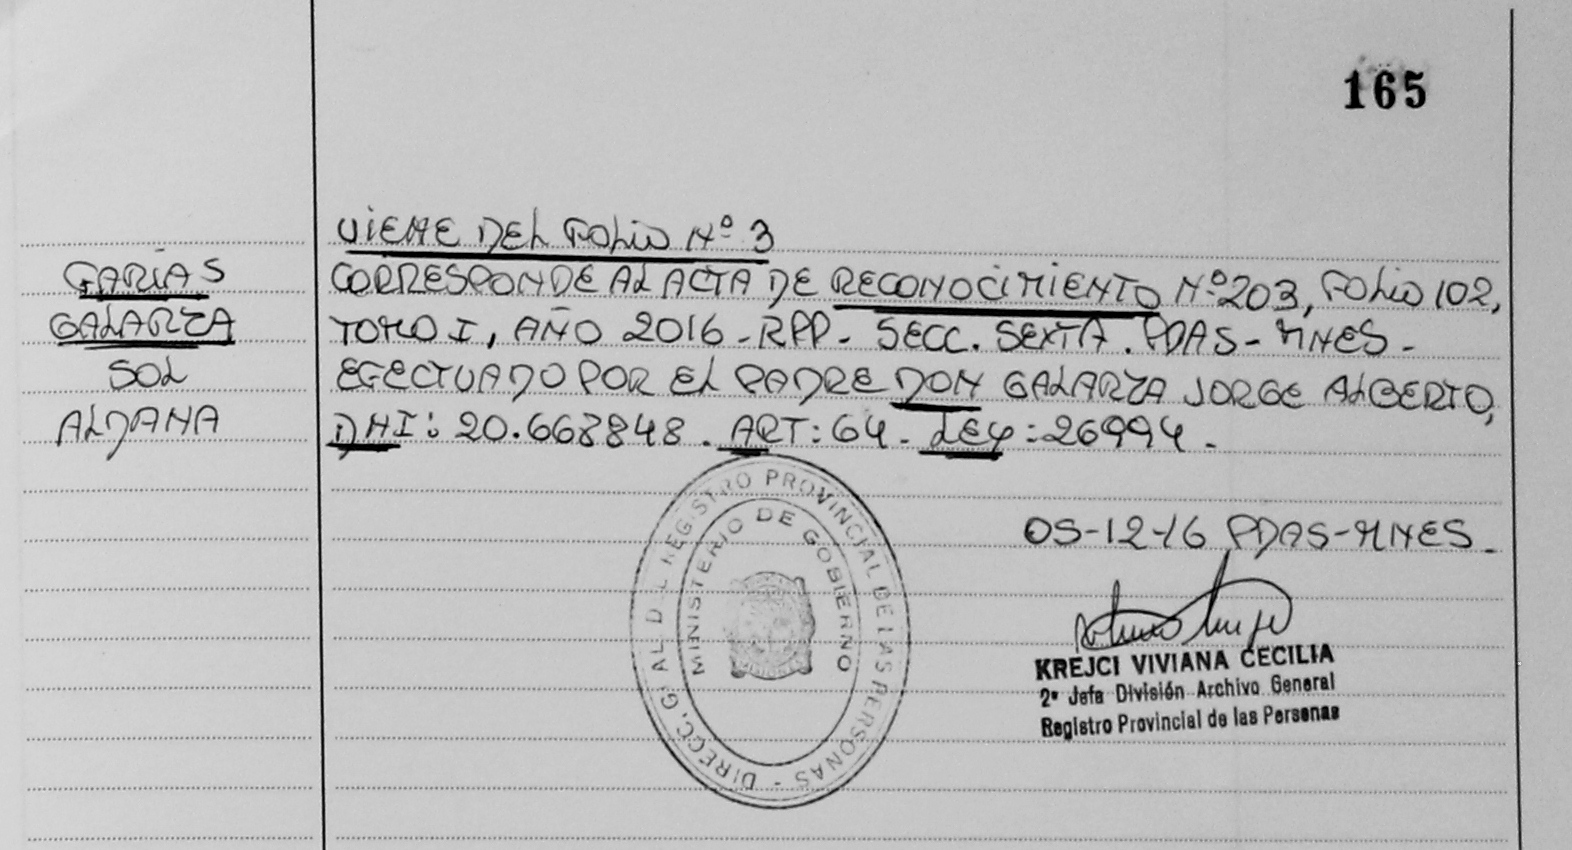 165
VIENE DEL FOLIO Nº 3
FARIAS
GALARZA
SOL
ALDANA
CORRESPONDE AL ACTA DE RECONOCIMIENTO Nº203, FOLIO 102,
TOMO I, AÑO 2016-RPP- SECC. SEXTA. PDAS-MNES-
EFECTUADO POR EL PADRE DON GALARZA JORGE ALBERTO,
DNI: 20.668848. ART: 64- LEY: 26994.
DIRECC. GRAL DEL REGISTRO PROVINCIAL DE LAS PERSONAS -
MINISTERIO DE GOBIERNO
MISIONES
05-12-16 PDAS-MNES.
KREJCI VIVIANA CECILIA
2ª Jefa División Archivo General
Registro Provincial de las Personas